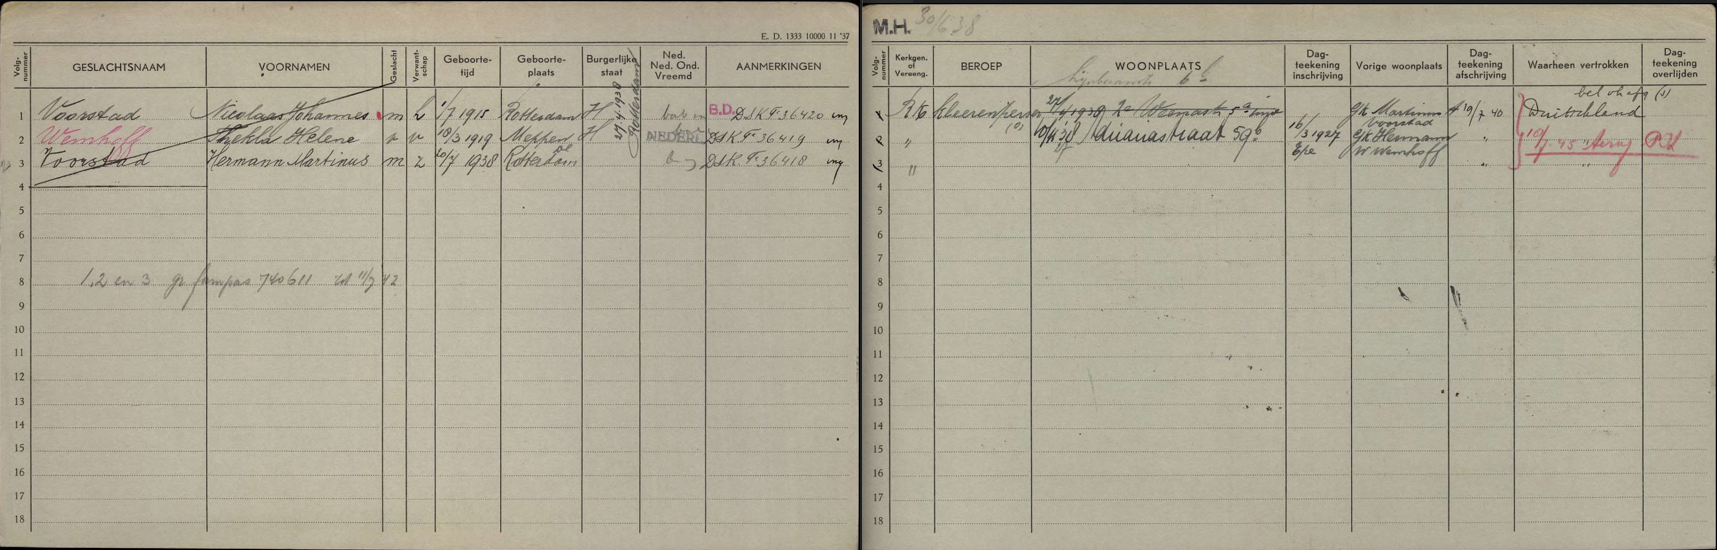 E. D. 1333 10000 11 '37
Volg-nummer GESLACHTSNAAM VOORNAMEN Geslacht Verwant-schap Geboorte-tijd Geboorte-plaats Burgerlijke staat Ned. Ned. Ond. Vreemd AANMERKINGEN
27.4.1938 Rotterdam
1 Voorstad Nicolaas Johannes m h 1/7 1915 Rotterdam H B.D. DSK F 36420
2 Wemhoff Thekla Helene v v 10/3 1919 Meppen H NEDERL DSK F 36419
3 Voorstad Hermann Martinus m z 20/7 1938 Rotterdam DSK F 36418
4
5
6
7
8 1, 2 en 3 gr 740611 tot 11/7 42
9
10
11
12
13
14
15
16
17
18
M.H. 30/6 38
Volg-nummer Kerkgen. of Vereeng. BEROEP WOONPLAATS Dag-teekening inschrijving Vorige woonplaats Dag-teekening afschrijving Waarheen vertrokken Dag-teekening overlijden
6b
1 RK kleerenperser 1939 g/k Martinus Voorstad 19/7 40 Duitschland
2 " 10/11 38 Lananastraat 59b 16/3 1927 Epe g/k Hermann W Wemhoff " 45 Terug RK
3 " " "
4
5
6
7
8
9
10
11
12
13
14
15
16
17
18